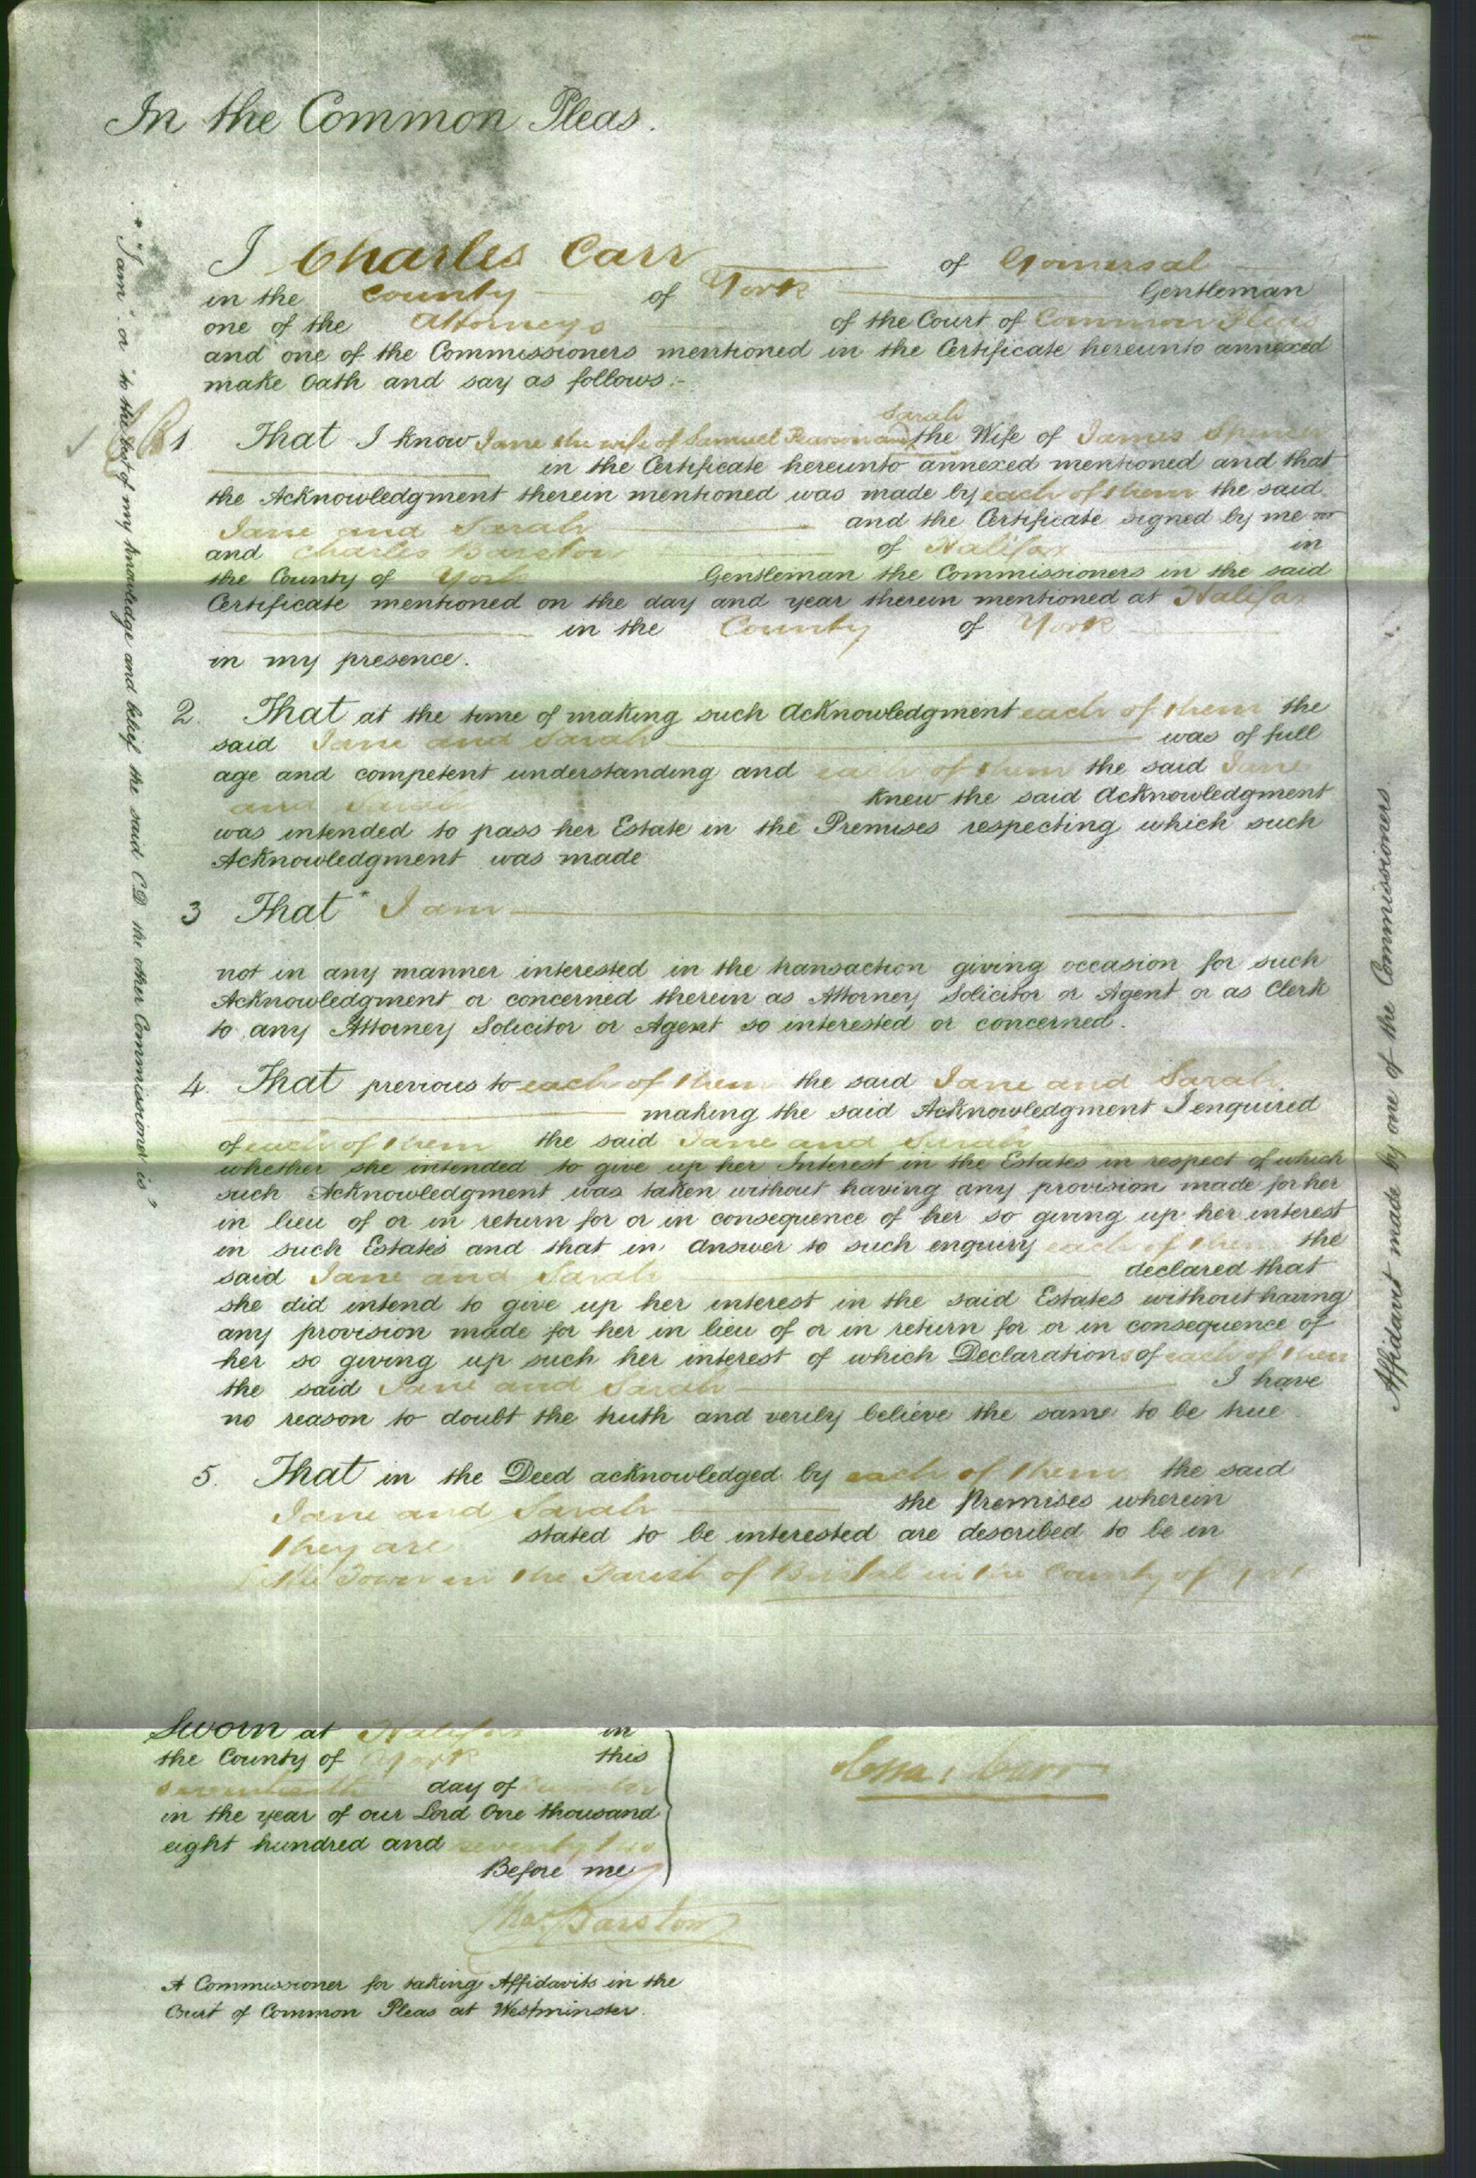 In the Common Pleas.
I Charles Carr of Gomersal
in the County of York Gentleman
one of the Attorneys of the Court of Common Pleas
and one of the Commissioners mentioned in the Certificate hereunto annexed
make Oath and say as follows:-
Sarah
1 That I know Jane the wife of Samuel Pearson and the Wife of James Spencer
in the Certificate hereunto annexed mentioned and that
the Acknowledgment therein mentioned was made by each of them the said
Jane and Sarah and the Certificate signed by me
and Charles Barstow of Halifax in
the County of York Gentleman the Commissioners in the said
Certificate mentioned on the day and year therein mentioned at Halifax
in the County of York
in my presence.
2. That at the time of making such Acknowledgment each of them the
said Jane and Sarah was of full
age and competent understanding and each of them the said Jane
and Sarah knew the said Acknowledgment
was intended to pass her Estate in the Premises respecting which such
Acknowledgment was made
3 That * I am
not in any manner interested in the transaction giving occasion for such
Acknowledgment or concerned therein as Attorney Solicitor or Agent or as Clerk
to any Attorney Solicitor or Agent so interested or concerned.
4. That previous to each of them the said Jane and Sarah
making the said Acknowledgment I enquired
of each of them the said Jane and Sarah
whether she intended to give up her Interest in the Estates in respect of which
such Acknowledgment was taken without having any provision made for her
in lieu of or in return for or in consequence of her so giving up her interest
in such Estates and that in answer to such enquiry each of them the
said Jane and Sarah declared that
she did intend to give up her interest in the said Estates without having
any provision made for her in lieu of or in return for or in consequence of
her so giving up such her interest of which Declarations of each of them
the said Jane and Sarah I have
no reason to doubt the truth and verily believe the same to be true
5. That in the Deed acknowledged by each of them the said
Jane and Sarah the Premises wherein
they are stated to be interested are described to be in
in the Parish of Birstal in the County of York
Sworn at Halifax in
the County of York this
seventeenth day of
in the year of our Lord One thousand
eight hundred and seventy two
Before me
Chas. Barstow
A Commissioner for taking Affidavits in the
Court of Common Pleas at Westminster.
Chas: Carr
* "I am" or "to the best of my knowledge and belief the said C.D. the other Commissioner is"
Affidavit made by one of the Commissioners